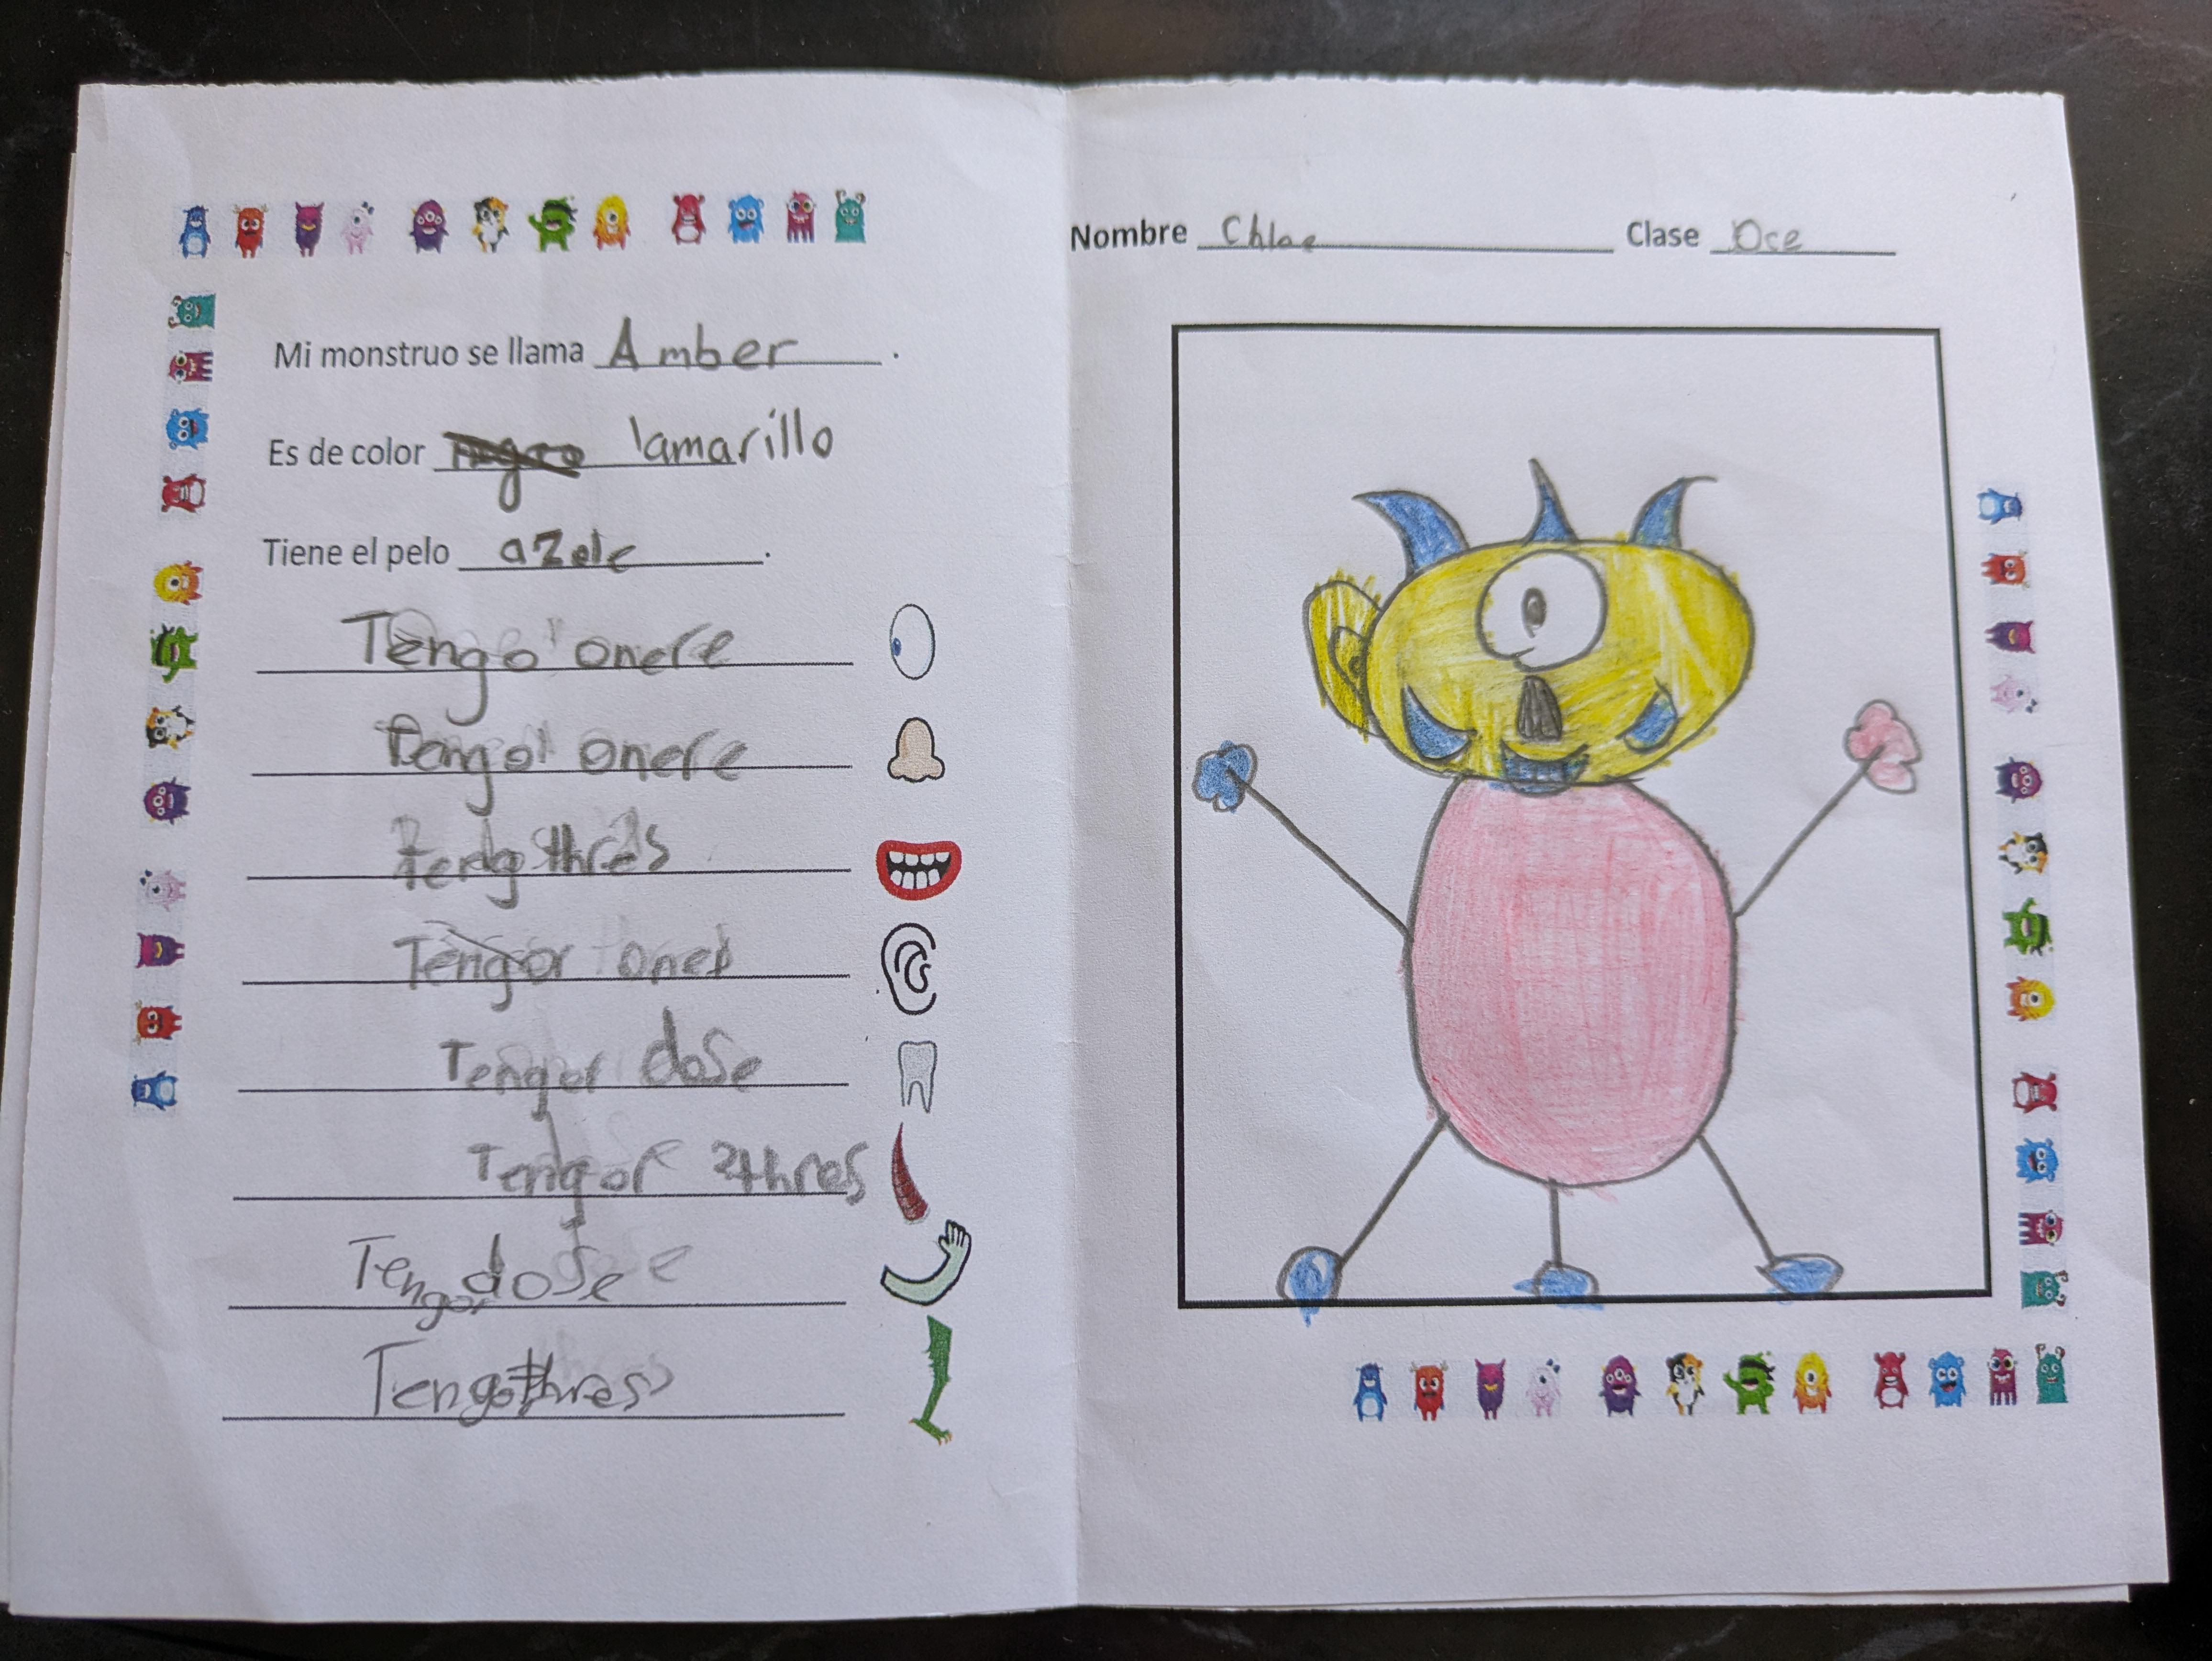 Mi monstruo se llama Amber.
Es de color negro lamarillo
Tiene el pelo azele.
Tengo onere
Tengo onere
teng thres
Tengor ones
Tengor dose
Tengor thres
Tengor dose
Tengo thres
Nombre Chloe Clase Oce